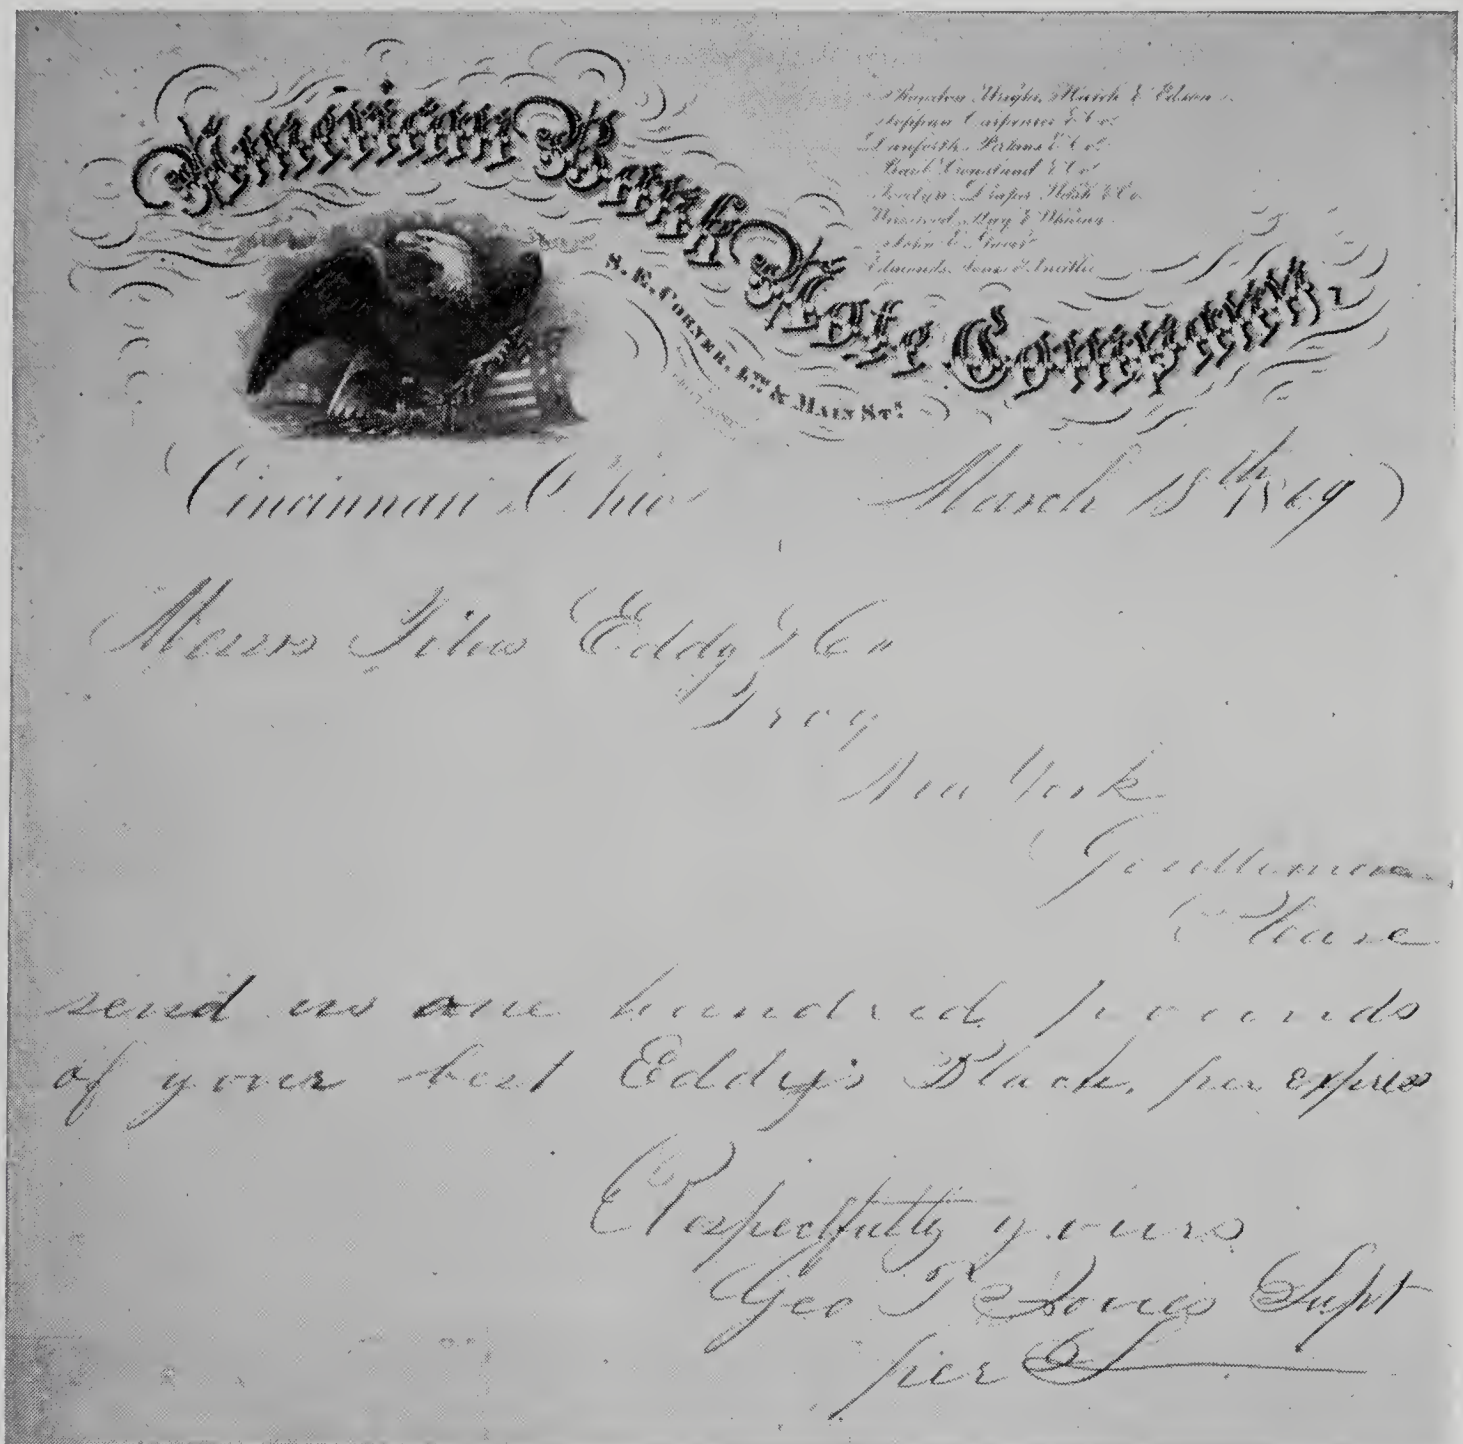 American Bank Note Company,
Rawdon, Wright, Hatch & Edson.
Toppan Carpenter & Co.
Danforth, Perkins & Co.
Bald Cousland & Co.
Jocelyn, Draper, Welsh & Co.
Wellstood, Hay & Whiting
John E. Gavit
Edmonds, Jones & Smillie
S. E. Corner, 4th & Main Sts.
Cincinnati Ohio March 18th 1869
Messrs Titus Eddy & Co
Troy
New York
Gentlemen
Please
send us one hundred pounds
of your best Eddy's Black, per express
Respectfully yours
Geo T Jones Supt
per